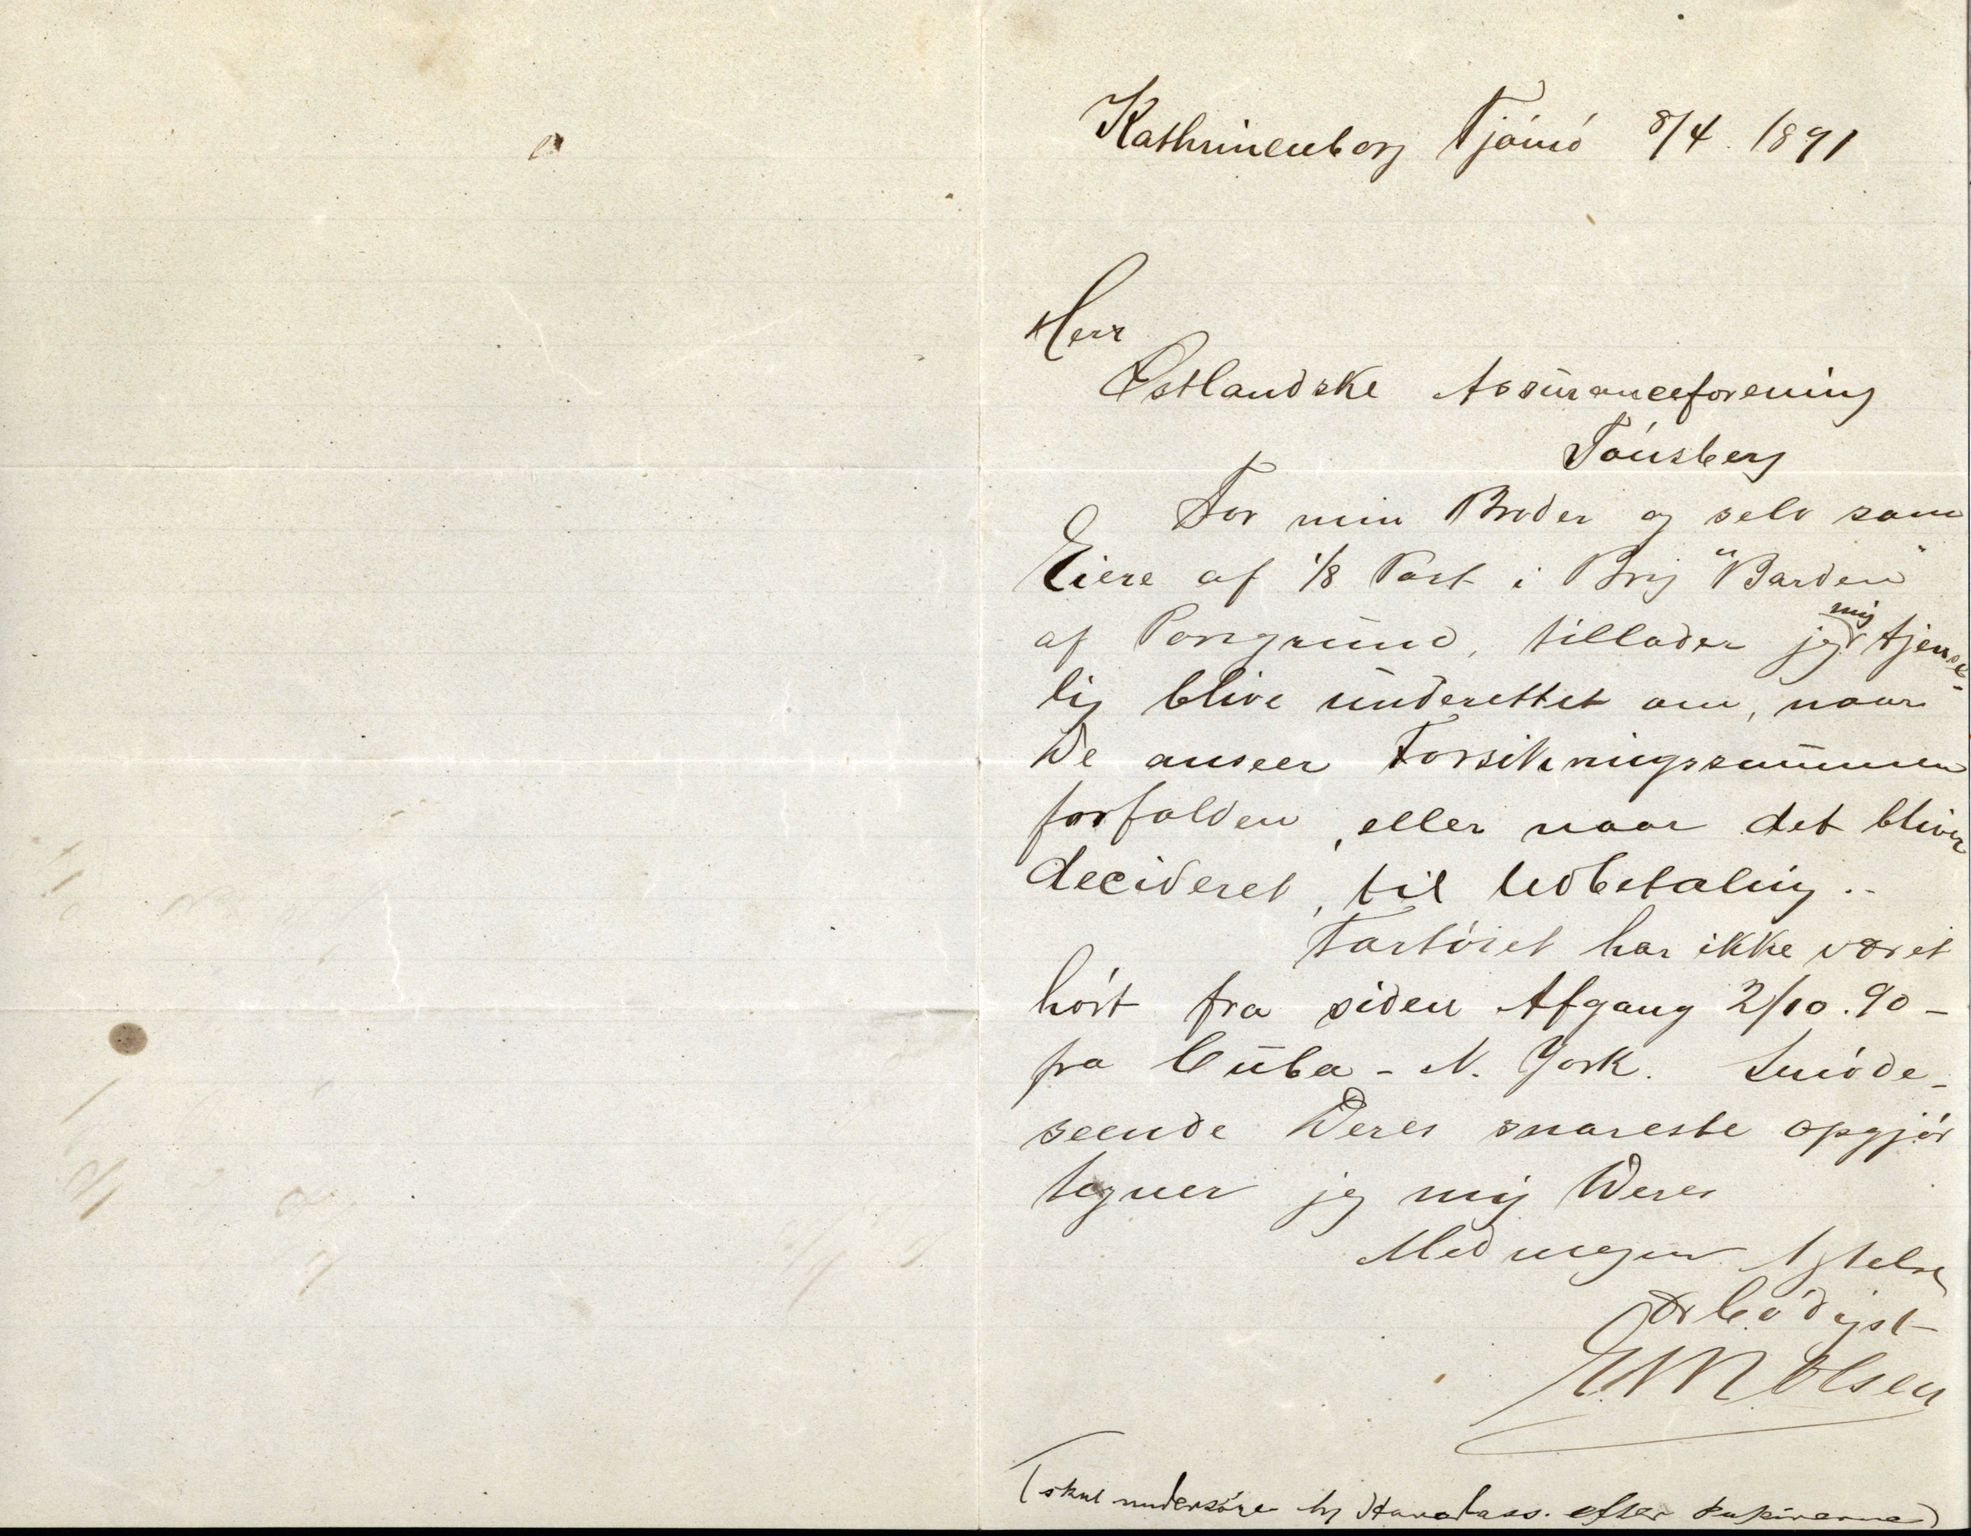 Kathrinenborg Tjömö 8/4. 1891
Herr
Østlandske Assuranceforening
Tönsberg
For min Broder og selv som
Eiere af 1/8 Part i Brig "Barden"
af Porsgrund, tillader jeg mig tjenst-
lig blive underettet om, naar
De anseer Forsikringssummen
forfalden, eller naar det bliver
decideret, til Udbetaling..
Fartöiet har ikke været
hört fra siden Afgang 2/10.90 -
fra Cuba - N. York. Imöde-
seende Deres snareste opgjör
tegner jeg mig Deres
Med megen Agtelse
ærbödigst
E M Olsen
(skal undersöge
efter Papirerne)